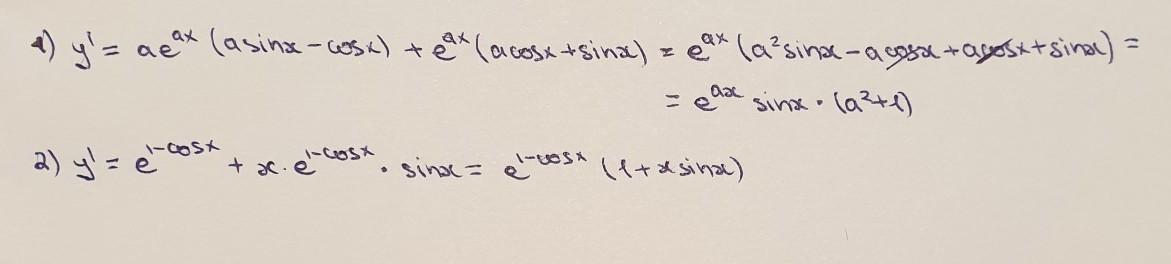 1) y' = ae^{ax} (a sinx - cosx) + e^{ax} (a cosx + sinx) = e^{ax} (a² sinx - a cosx + a cosx + sinx) =
= e^{ax} sinx · (a²+1)
2) y' = e^{1-cosx} + x · e^{1-cosx} · sinx = e^{1-cosx} (1 + x sinx)